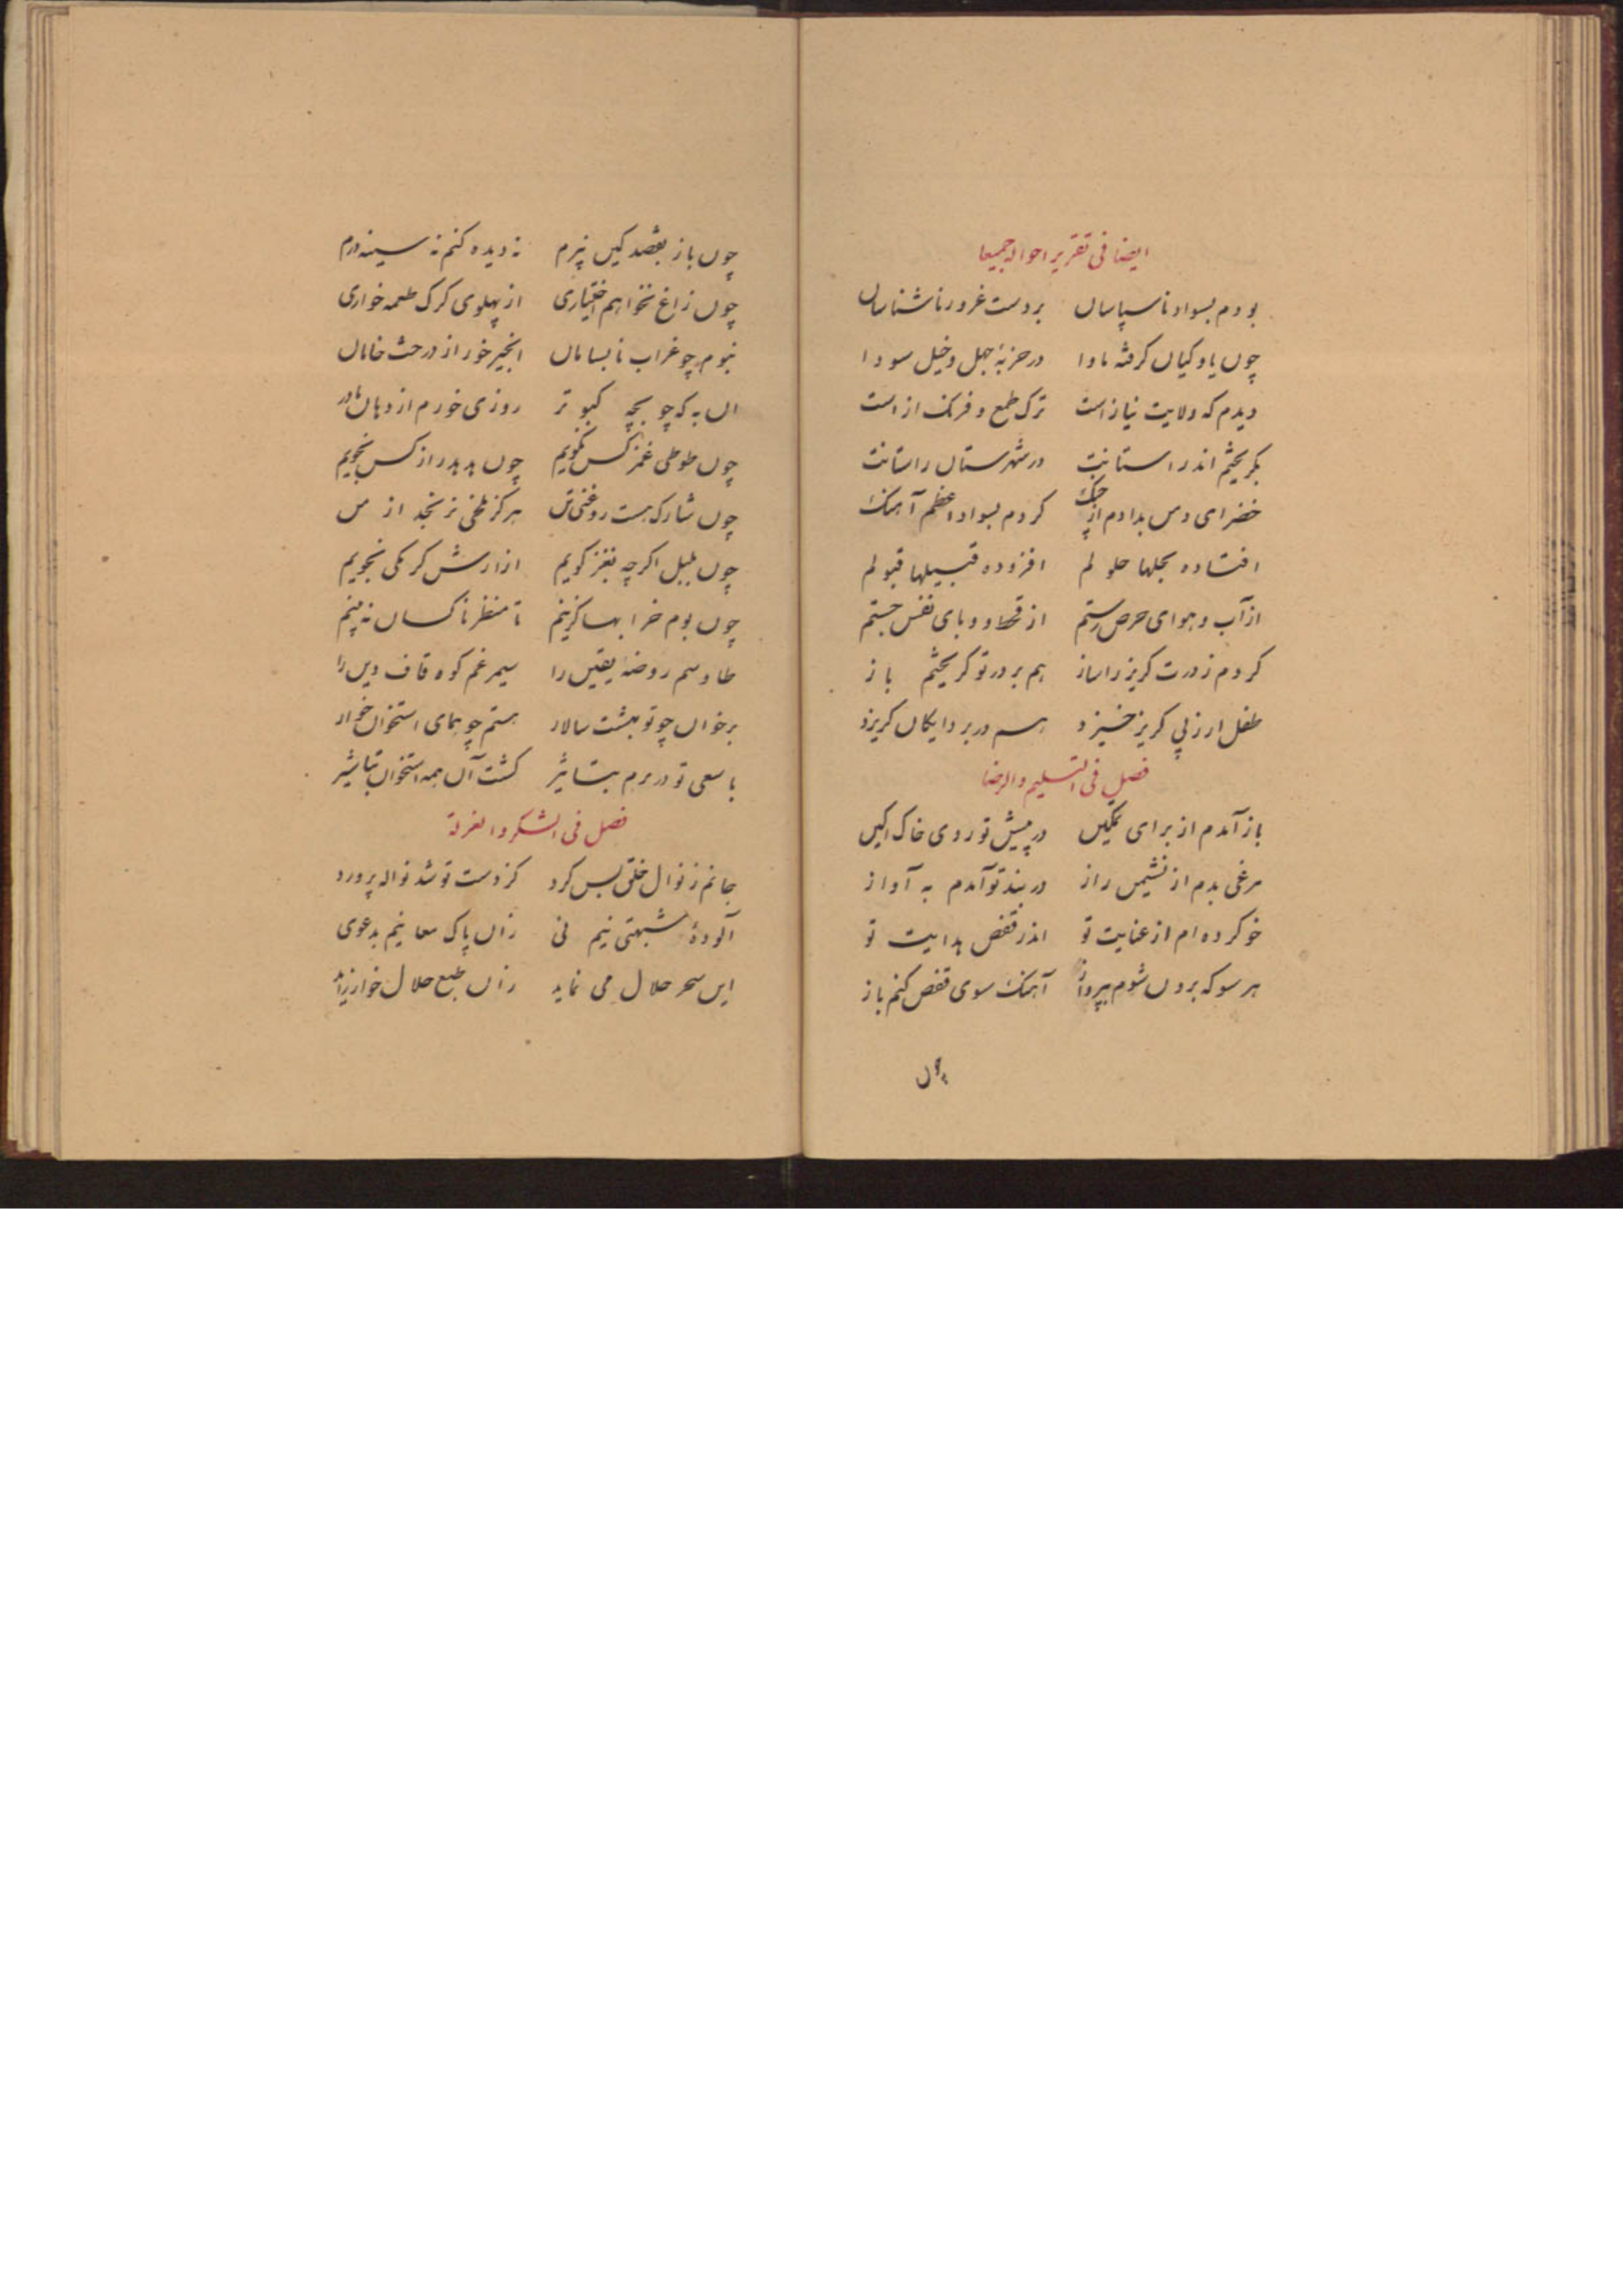 ایضا فی تقریر احواله جمیعا
بودم بسواد ناسپاسان بردست غرور ناشناسان
چون یاوکیان کرفته ماوا در حزبهٔ جهل وخیل سودا
دیدم که ولایت نیازاست ترک طمع و فرنک ازاست
بکریختم اندر استانت در شهرستان راستانت
خضرای دمن بدادم از چنک کردم بسواد اعظم آهنک
افتاده بحلها حلولم افزوده قبیلها قبولم
از آب و هوای حرص رستم از قحط و وبای نفس جستم
کردم ز درت کریز را ساز هم بر در تو کریختم باز
طفل ارزپی کریز خیزد هم در بر دایکان کریزد
فصل فی التسلیم والرضا
باز آمدم از برای تمکین در پیش تو روی خاک اکین
مرغی بدم از نشیمن راز در بند تو آمدم به آواز
خو کرده ام از عنایت تو اندر قفص هدایت تو
هر سو که برون شوم بپرواز آهنک سوی قفص کنم باز
چون
چون باز بقصد کین نپرم نه دیده کنم نه سینه درم
چون زاغ نخواهم اختیاری از پهلوی کرک طعمه خواری
نبوم چو غراب نابسامان انجیر خور از درخت خامان
ان به که چو بچه کبوتر روزی خورم از دهان مادر
چون طوطی غمز کس نکویم چون هدهد راز کس نجویم
چون شارک هست روغنی تن هرکز نرنجد از من
چون بلبل اکرچه نغز کویم ازارش کرمکی نجویم
چون بوم خرابها کزینم تا منظر ناکسان نه بینم
طاوسم روضهٔ یقین را سیمرغم کوه قاف دین را
برخوان چو تو بهشت سالار هستم چو همای استخوان خوار
با سعی تو در برم کشت آن همه استخوان تباشیر
فصل فی الشکر والعزلة
جانم ز نوال خلق بس کرد کز دست تو شد نواله پرورد
آلودهٔ شبهتی نیم نی زان پاک معانیم بدعوی
این سحر حلال می نماید زان طبع حلال خوار زاید